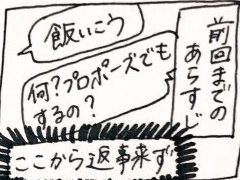 前回までの
あらすじ
飯いこう
何?プロポーズでも
するの?
ここから返事来ず